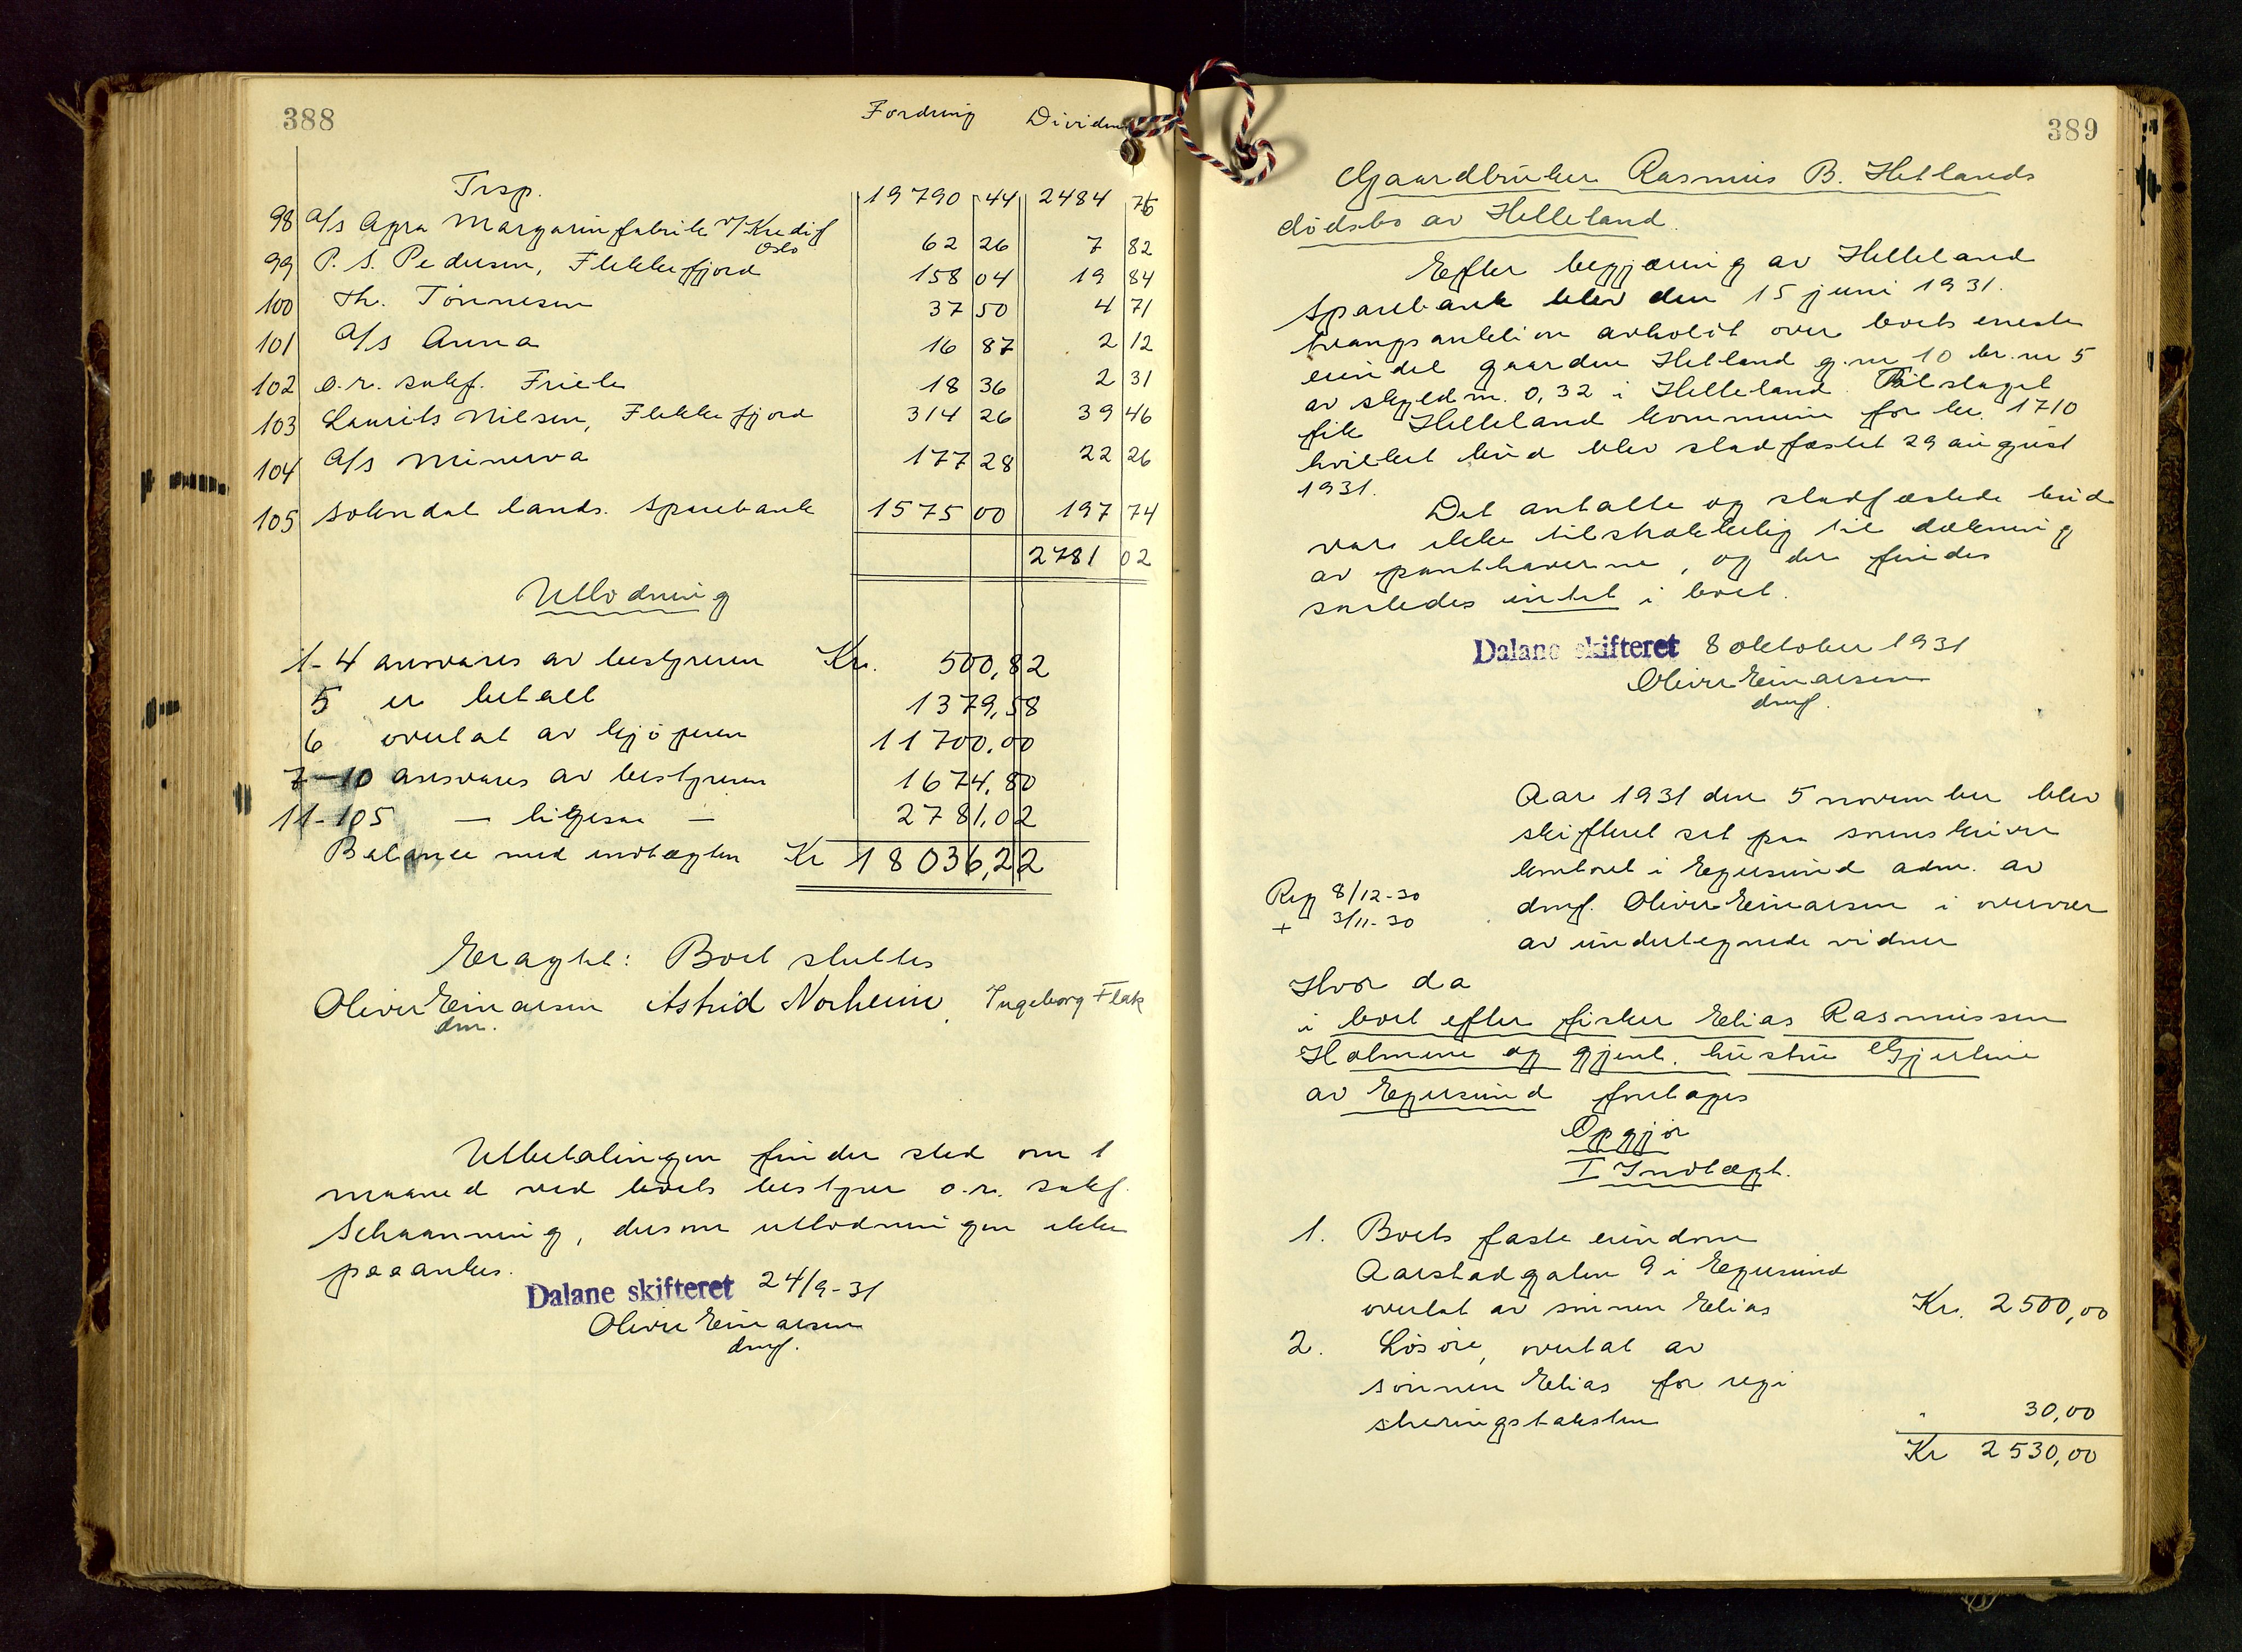 388
Fordring Dividen
Trsp. 19790 44 2484 76
98 A/s Agra Margarinfabrik v/ Kredif Oslo 62 26 7 82
99 P. S. Pedersen, Flekkefjord 158 04 19 84
100 Th. Tönnesen 37 50 4 71
101 A/s Anna 16 87 2 12
102 o.r. sakf. Friele 18 36 2 31
103 Laurits Nilsen, Flekkefjord 314 26 39 46
104 A/s Minerva 177 28 22 26
105 Sokndal lands. Sparebank 1575 00 197 74
2781 02
Utlodning
1-4 ansvares av bestyreren Kr. 500,82
5 er betalt 1379,58
6 overtat av kjöperen 11700,00
7-10 ansvares av bestyreren 1674,80
11-105 — ligesaa — 2781,02
Balance med indtægten Kr 18036,22
Eragtet: Boet sluttes
Oliver Einarsen Astrid Norheim, Ingeborg Flak
dm.
Utbetalingen finder sted om 1
maaned ved boets bestyrer o.r. sakf.
Schaanning, dersom utlodningen ikke
paaankes.
Dalane skifteret 24/9-31
Oliver Einarsen
dmf.
389
Gaardbruker Rasmus B. Hetlands
dödsbo av Helleland.
Efter begjæring av Helleland
Sparebank blev den 15 juni 1931.
tvangsauktion avholdt over boets eneste
eiendel gaarden Hetland g.nr 10 br.nr 5
av skyld m. 0,32 i Helleland. Tilslaget
fik Helleland kommune for kr. 1710
hvilket bud blev stadfæstet 29 august
1931.
Det antatte og stadfæstede bud
var ikke tilstrækkelig til dækning
av panthaverne, og der findes
saaledes intet i boet.
Dalane skifteret 8 oktober 1931
Oliver Einarsen
dmf.
Aar 1931 den 5 november blev
skifteret sat paa sorenskriver
kontoret i Egersund adm. av
dmf. Oliver Einarsen i overvær
av undertegnede vidner
Reg 8/12-30
+ 3/11-30
Hvor da
i boet efter fisker Elias Rasmussen
Holmene og gjenl. hustru Gjertine
av Egersund foretages
Opgjör
I Indtægt.
1. Boets faste eiendom
Aarstadgaten 9 i Egersund
overtat av sönnen Elias Kr. 2500,00
2. Lösöre, overtat av
sönnen Elias for regi
streringstaksten " 30,00
Kr 2530,00